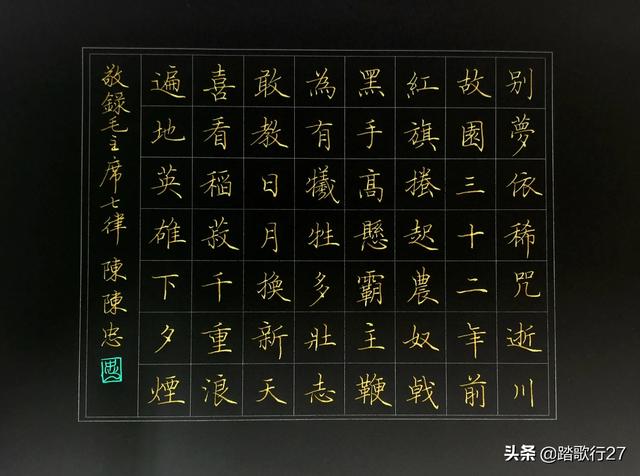 别夢依稀咒逝川
故園三十二年前
紅旗捲起農奴戟
黑手髙懸霸主鞭
為有犧牲多壯志
敢教日月換新天
喜看稻菽千重浪
遍地英雄下夕煙
敬録毛主席七律 陳陳忠
头条@踏歌行27